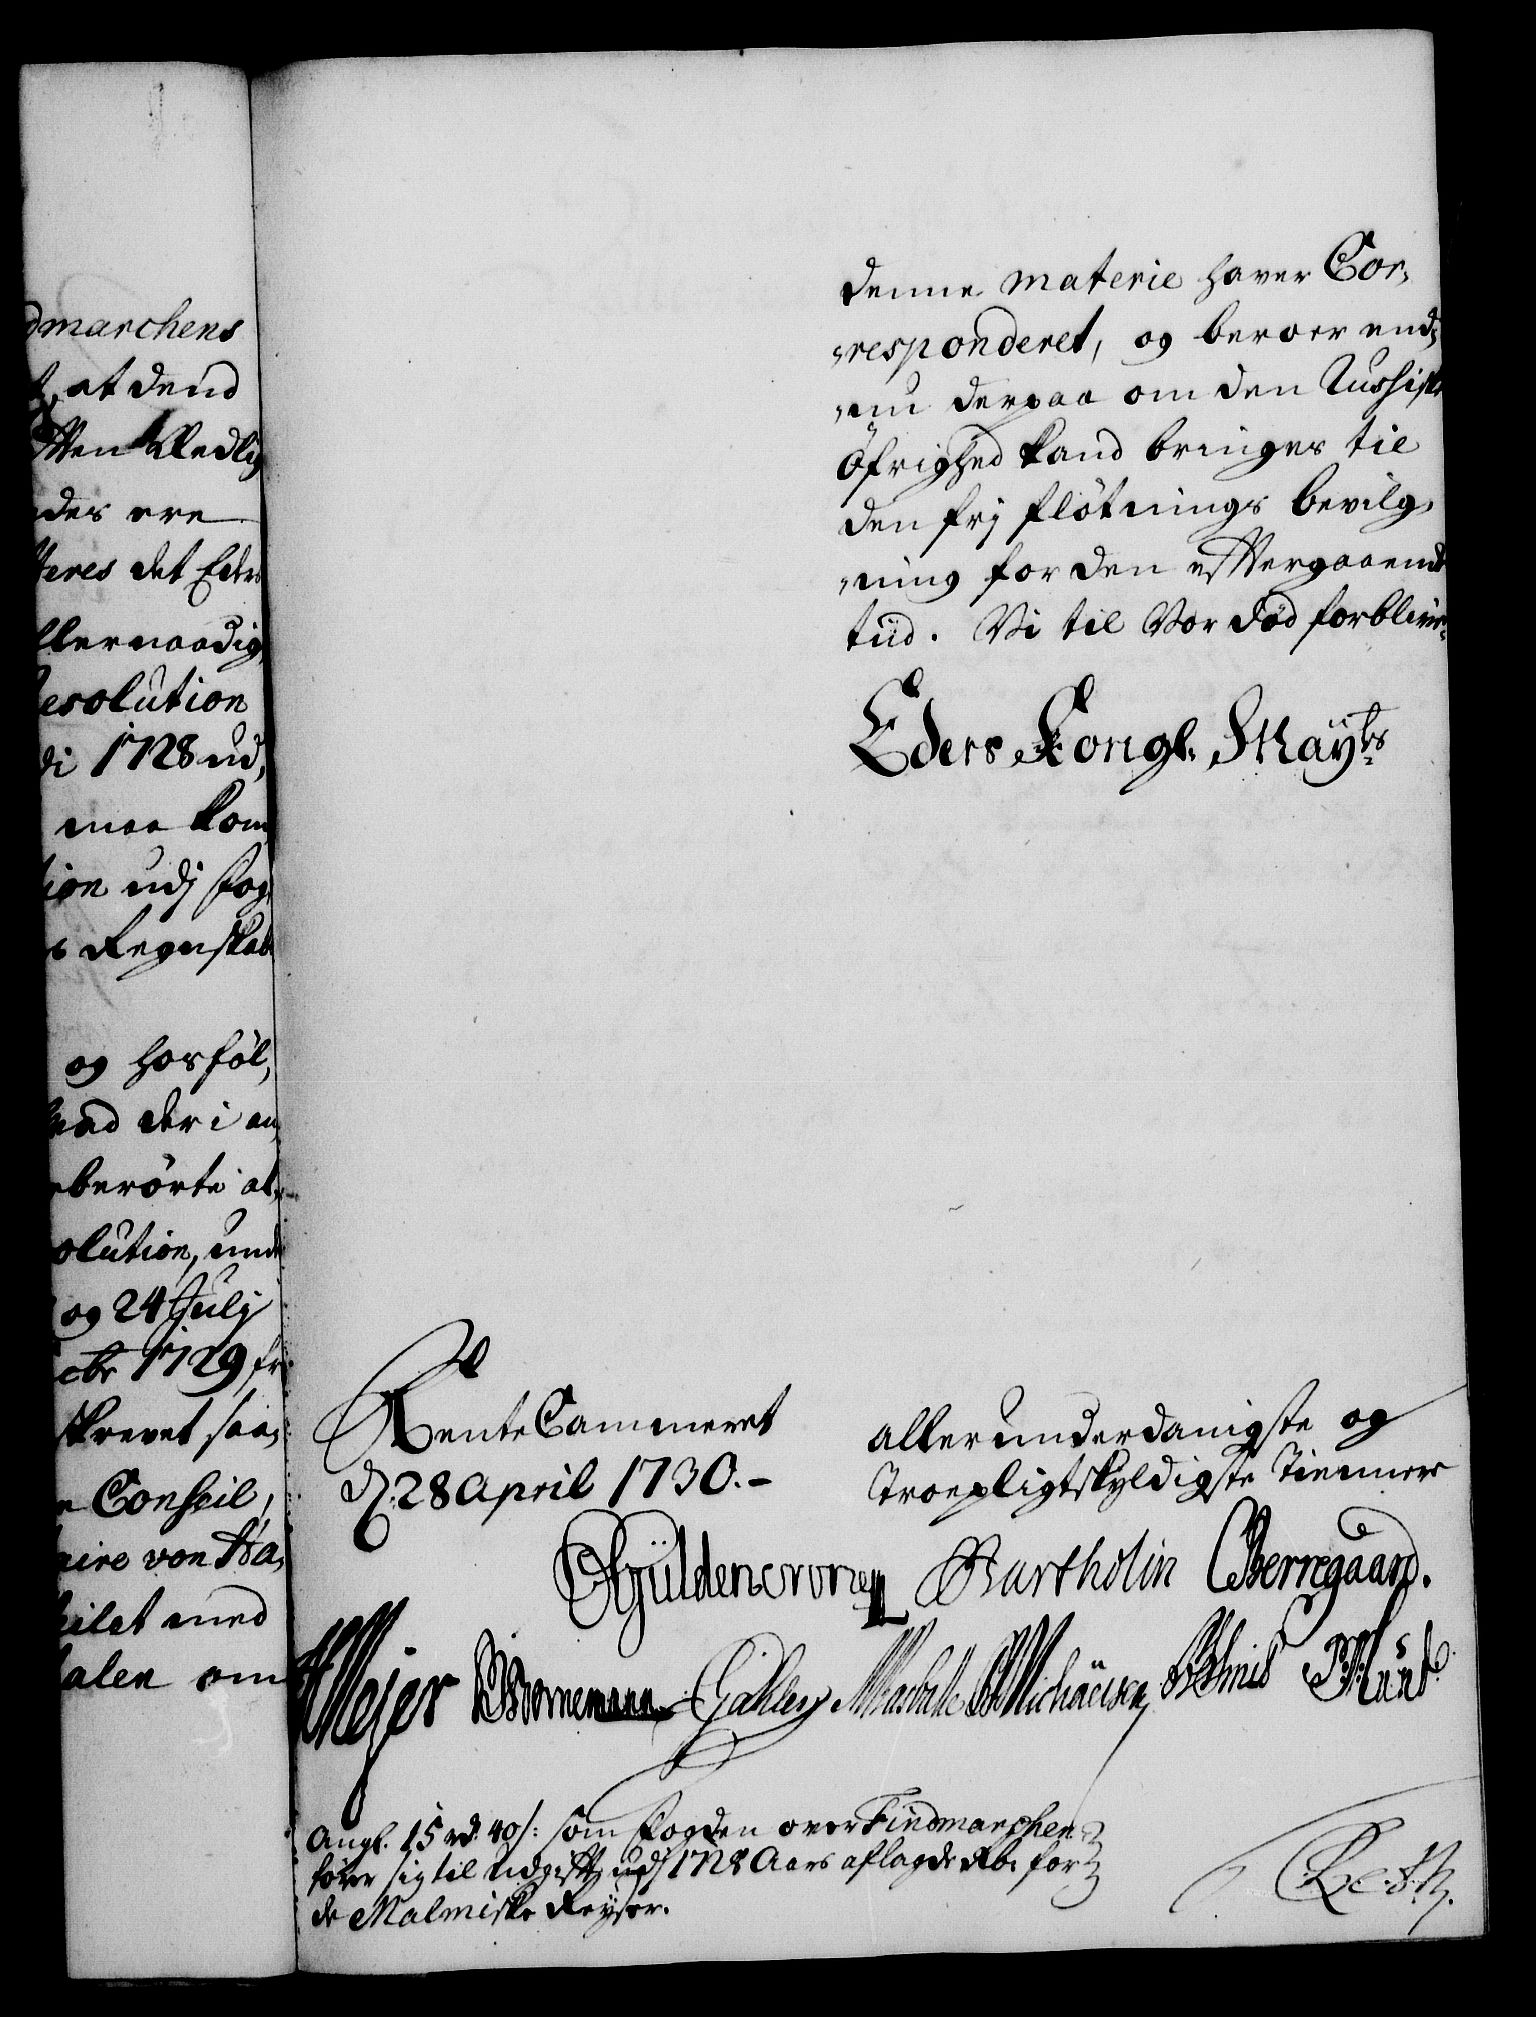 dmarchens
at dend
Vedlig
des ere
teres det Eders
llernaadig
esolution
di 1728 ud,
maa kom
tion udj fog,
s Regnskab
og hosføl,
der i an
berørte al,
olution, und
og 24 Julj
1729 fr
skrevet saa,
e Conseil,
aire von Ha,
med
talen om
denne materie haver Cor,
,responderet, og beroer end,
,nu derpaa om den Russiske
Øfrighed kand bringes til
den frj fløtnings bevilg,
,ning for den efftergaaende
tiid. Vi til Vor død forblive
Eders Kongl. Mayts
RenteCammeret
d. 28 April 1730.-
allerunderdanigste og
Troepligtskyldigste Tiennere
Güldencrone Bartholin Berregaard.
Mejer Bornemann Gähler Michaelsen
Angl. 15 rd. 40 s: som fogden over Findmarchen
fører sig til Udgifft udj 1728 Aars aflagde Rb. for
de Malmiske Reyser.